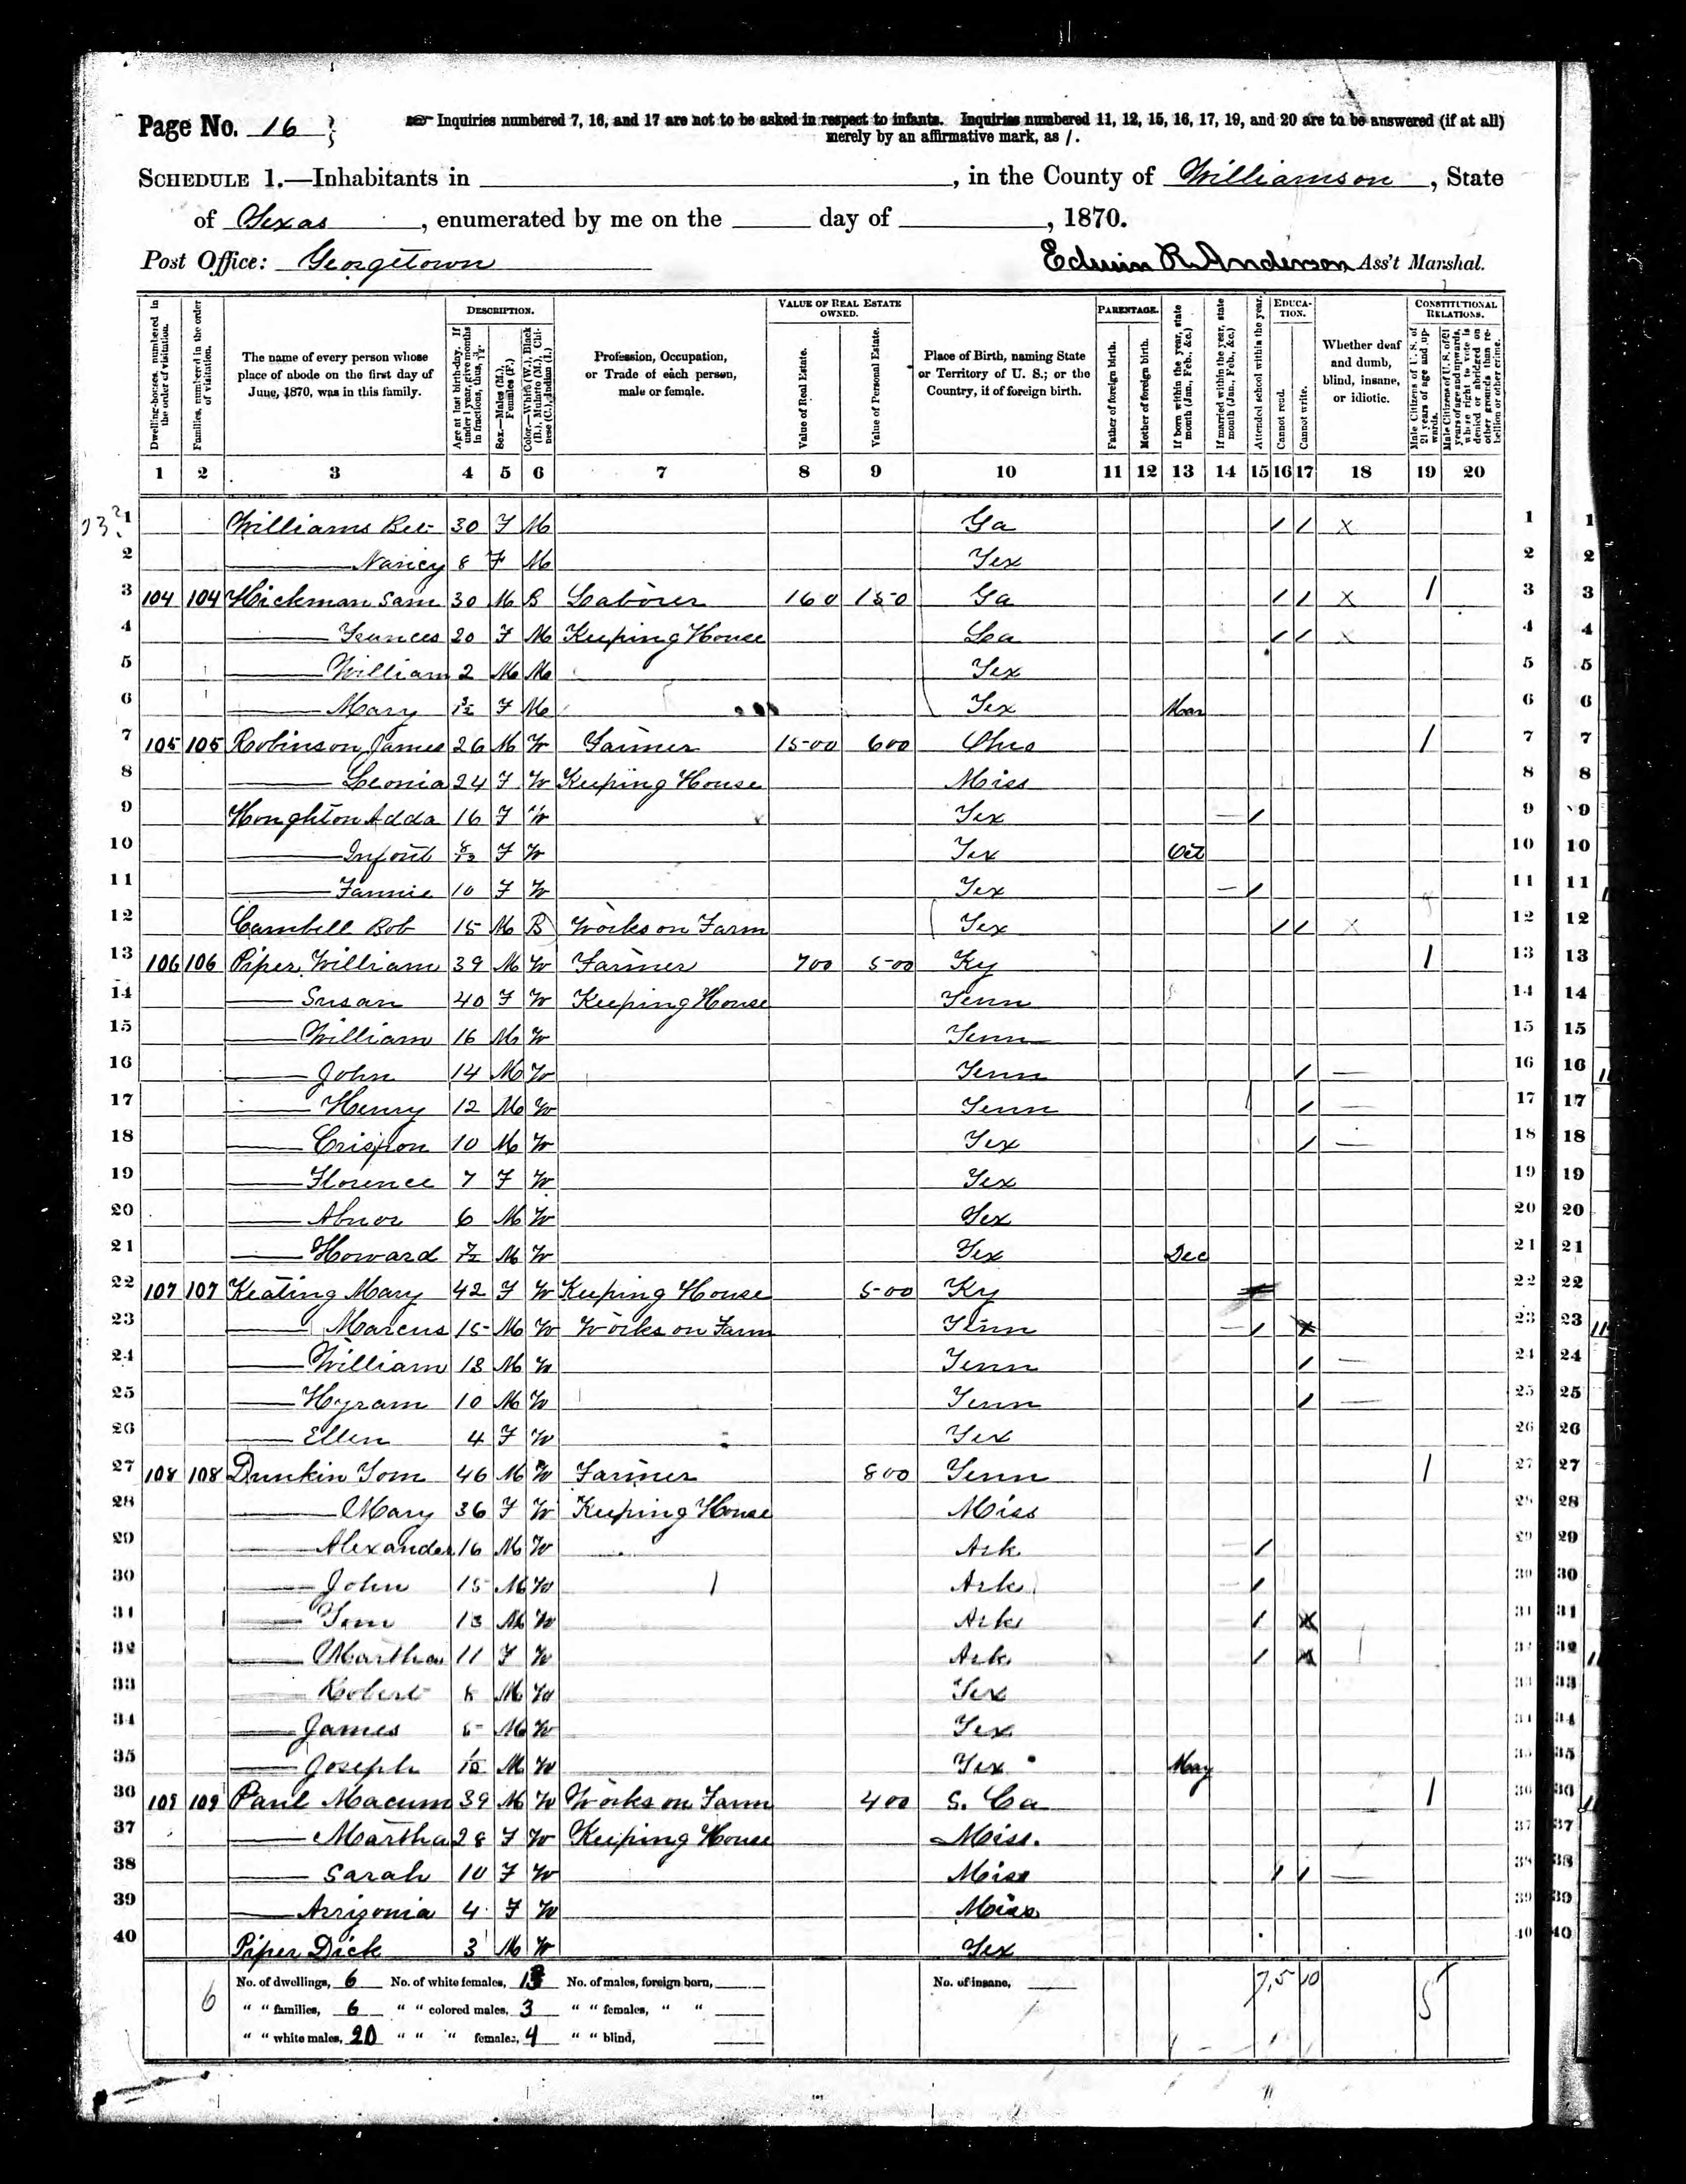 Page No. 16 } Inquiries numbered 7, 16, and 17 are not to be asked in respect to infants. Inquiries numbered 11, 12, 15, 16, 17, 19, and 20 are to be answered (if at all)
merely by an affirmative mark, as /.
SCHEDULE 1.—Inhabitants in , in the County of Williamson, State
of Texas, enumerated by me on the day of , 1870.
Post Office: Georgetown Edwin R. Anderson Ass't Marshal.
DESCRIPTION. VALUE OF REAL ESTATE OWNED. PARENTAGE. EDUCATION. CONSTITUTIONAL RELATIONS.
Dwelling-houses, numbered in the order of visitation.
Families, numbered in the order of visitation.
The name of every person whose place of abode on the first day of June, 1870, was in this family.
Age at last birth-day. If under 1 year, give months in fractions, thus, 3/12.
Sex.—Males (M.), Females (F.)
Color.—White (W.), Black (B.), Mulatto (M.), Chinese (C.), Indian (I.)
Profession, Occupation, or Trade of each person, male or female.
Value of Real Estate.
Value of Personal Estate.
Place of Birth, naming State or Territory of U. S.; or the Country, if of foreign birth.
Father of foreign birth.
Mother of foreign birth.
If born within the year, state month (Jan., Feb., &c.)
If married within the year, state month (Jan., Feb., &c.)
Attended school within the year.
Cannot read.
Cannot write.
Whether deaf and dumb, blind, insane, or idiotic.
Male Citizens of U. S. of 21 years of age and upwards.
Male Citizens of U. S. of 21 years of age and upwards, whose right to vote is denied or abridged on other grounds than rebellion or other crime.
1 2 3 4 5 6 7 8 9 10 11 12 13 14 15 16 17 18 19 20
1 Williams 30 F M Ga / / x 1 1
2 —— Nancy 8 F M Tex 2 2
3 104 104 Hickman Sam 30 M B Laborer 160 150 Ga / / x / 3 3
4 —— Frances 20 F M Keeping House La / / x 4 4
5 —— William 2 M M Tex 5 5
6 —— Mary 3/12 F M Tex Mar 6 6
7 105 105 Robinson James 26 M W Farmer 1500 600 Ohio / 7 7
8 —— Leonia 24 F W Keeping House Miss 8 8
9 Houghton Adda 16 F W Tex / 9 9
10 —— Infant 8/12 F W Tex Oct 10 10
11 —— Fannie 10 F W Tex / 11 11
12 Cambell Bob 15 M B Works on Farm Tex / / x 12 12
13 106 106 Piper William 39 M W Farmer 700 500 Ky / 13 13
14 —— Susan 40 F W Keeping House Tenn 14 14
15 —— William 16 M W Tenn 15 15
16 —— John 14 M W Tenn / — 16 16
17 —— Henry 12 M W Tenn / — 17 17
18 —— Crispon 10 M W Tex / — 18 18
19 —— Florence 7 F W Tex 19 19
20 —— Abner 6 M W Tex 20 20
21 —— Howard 7/12 M W Tex Dec 21 21
22 107 107 Keating Mary 42 F W Keeping House 500 Ky 22 22
23 —— Marcus 15 M W Works on Farm Tenn / x 23 23
24 —— William 13 M W Tenn / — 24 24
25 —— Hyram 10 M W Tenn / — 25 25
26 —— Ellen 4 F W Tex 26 26
27 108 108 Dunkin Tom 46 M W Farmer 800 Tenn / 27 27
28 —— Mary 36 F W Keeping House Miss 28 28
29 —— Alexander 16 M W Ark / 29 29
30 —— John 15 M W Ark / 30 30
31 —— Tom 13 M W Ark / x 31 31
32 —— Martha 11 F W Ark / x 32 32
33 —— Robert 8 M W Tex 33 33
34 —— James M W Tex 34 34
35 —— Joseph 1/12 M W Tex May 35 35
36 109 109 Paul Macum 39 M W Works on Farm 400 S. Ca / 36 36
37 —— Martha 28 F W Keeping House Miss. 37 37
38 —— Sarah 10 F W Miss / / — 38 38
39 —— Arrizonia 4 F W Miss 39 39
40 Piper Dick 3 M W Tex 40 40
6 No. of dwellings, 6 No. of white females, 13 No. of males, foreign born, No. of insane, 7, 5 10 5
" " families, 6 " " colored males, 3 " " females, " "
" " white males, 20 " " " females, 4 " " blind,